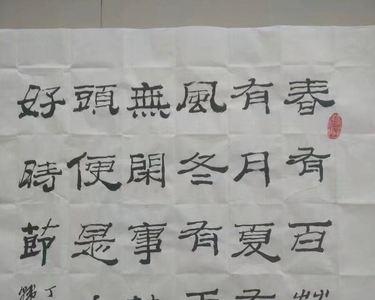 春有百
有月夏有
風冬有
無閑事
頭便是
好時節
丁